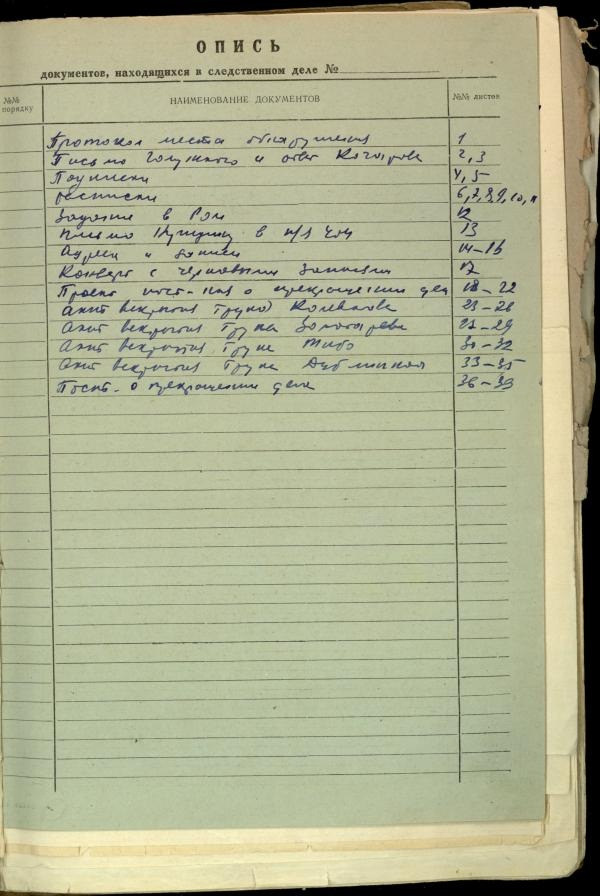 ОПИСЬ
документов, находящихся в следственном деле №
№№ порядку НАИМЕНОВАНИЕ ДОКУМЕНТОВ №№ листов
Протокол места обнаружения 1
Письмо и ответ 2, 3
Подписки 4, 5
расписки 6, 7, 8, 9, 10, 11
в 12
письмо в п/я 13
Адреса и записи 14-16
Конверт с черновыми записями 17
Проект пост-ния о прекращении дела 18-22
Акт вскрытия трупа Колеватова 23-26
Акт вскрытия трупа Золотарева 27-29
Акт вскрытия трупа Тибо 30-32
Акт вскрытия трупа Дубининой 33-35
Пост. о прекращении дела 36-39